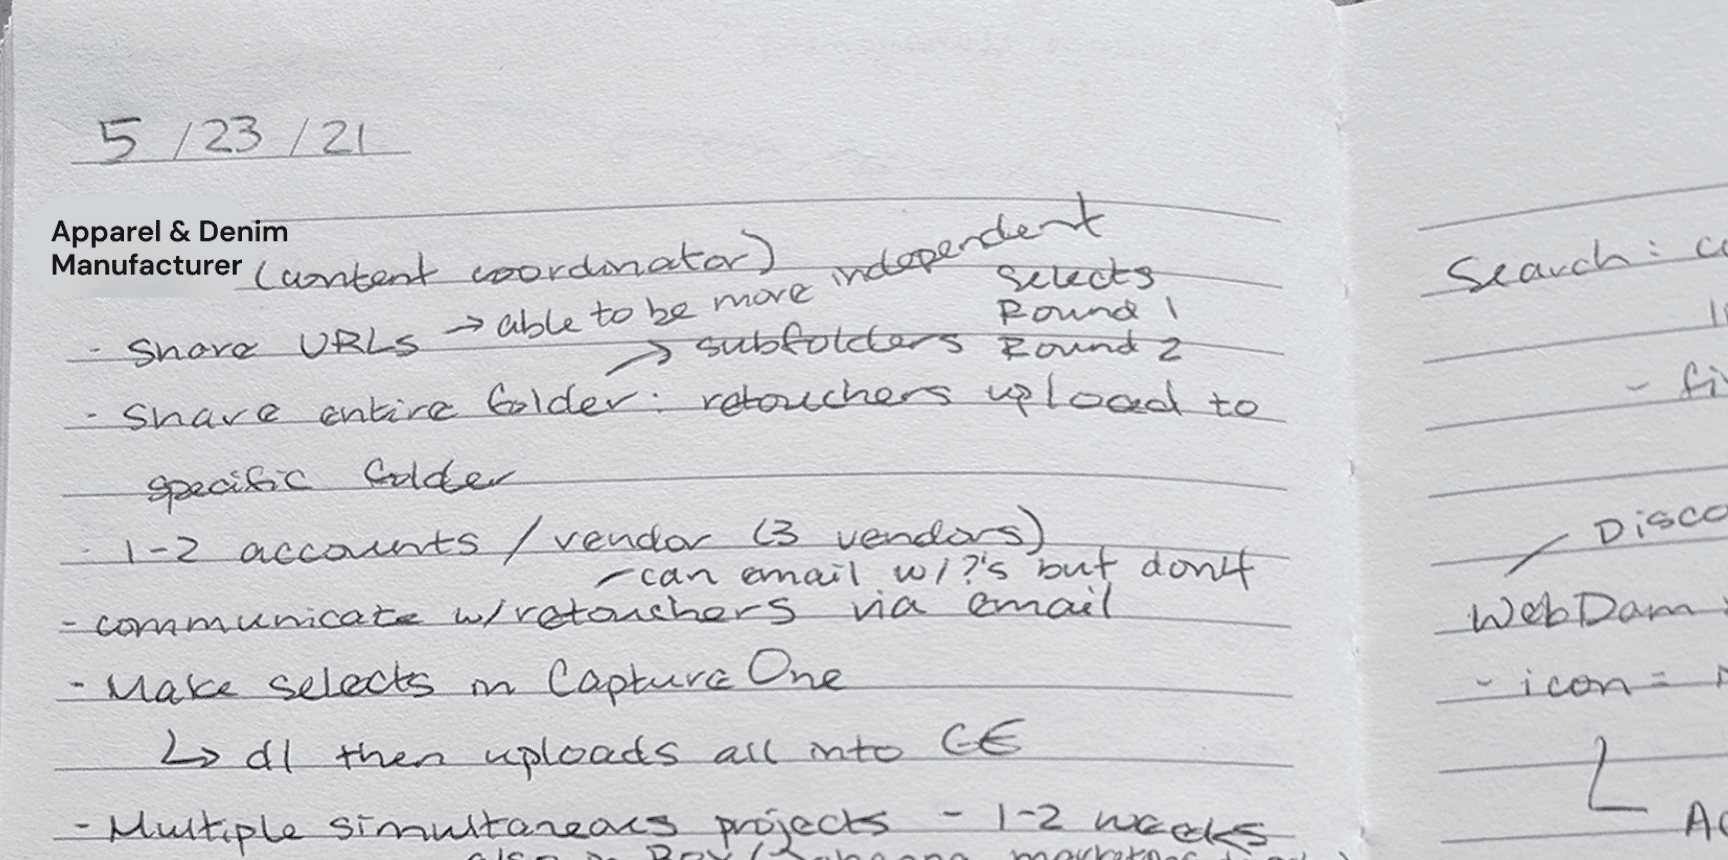 5/23/21
Apparel & Denim
Manufacturer (content coordinator)
- Share URLs → able to be more independent
Selects
Round 1
→ subfolders Round 2
- Share entire folder: retouchers upload to
specific folder
- 1-2 accounts / vendor (3 vendors)
- can email w/?'s but don't
- communicate w/retouchers via email
- Make selects in Capture One
↳ dl then uploads all into
- Multiple simultaneous projects - 1-2 weeks
also in Box
Search:
-
Disco
WebDam
- icon =